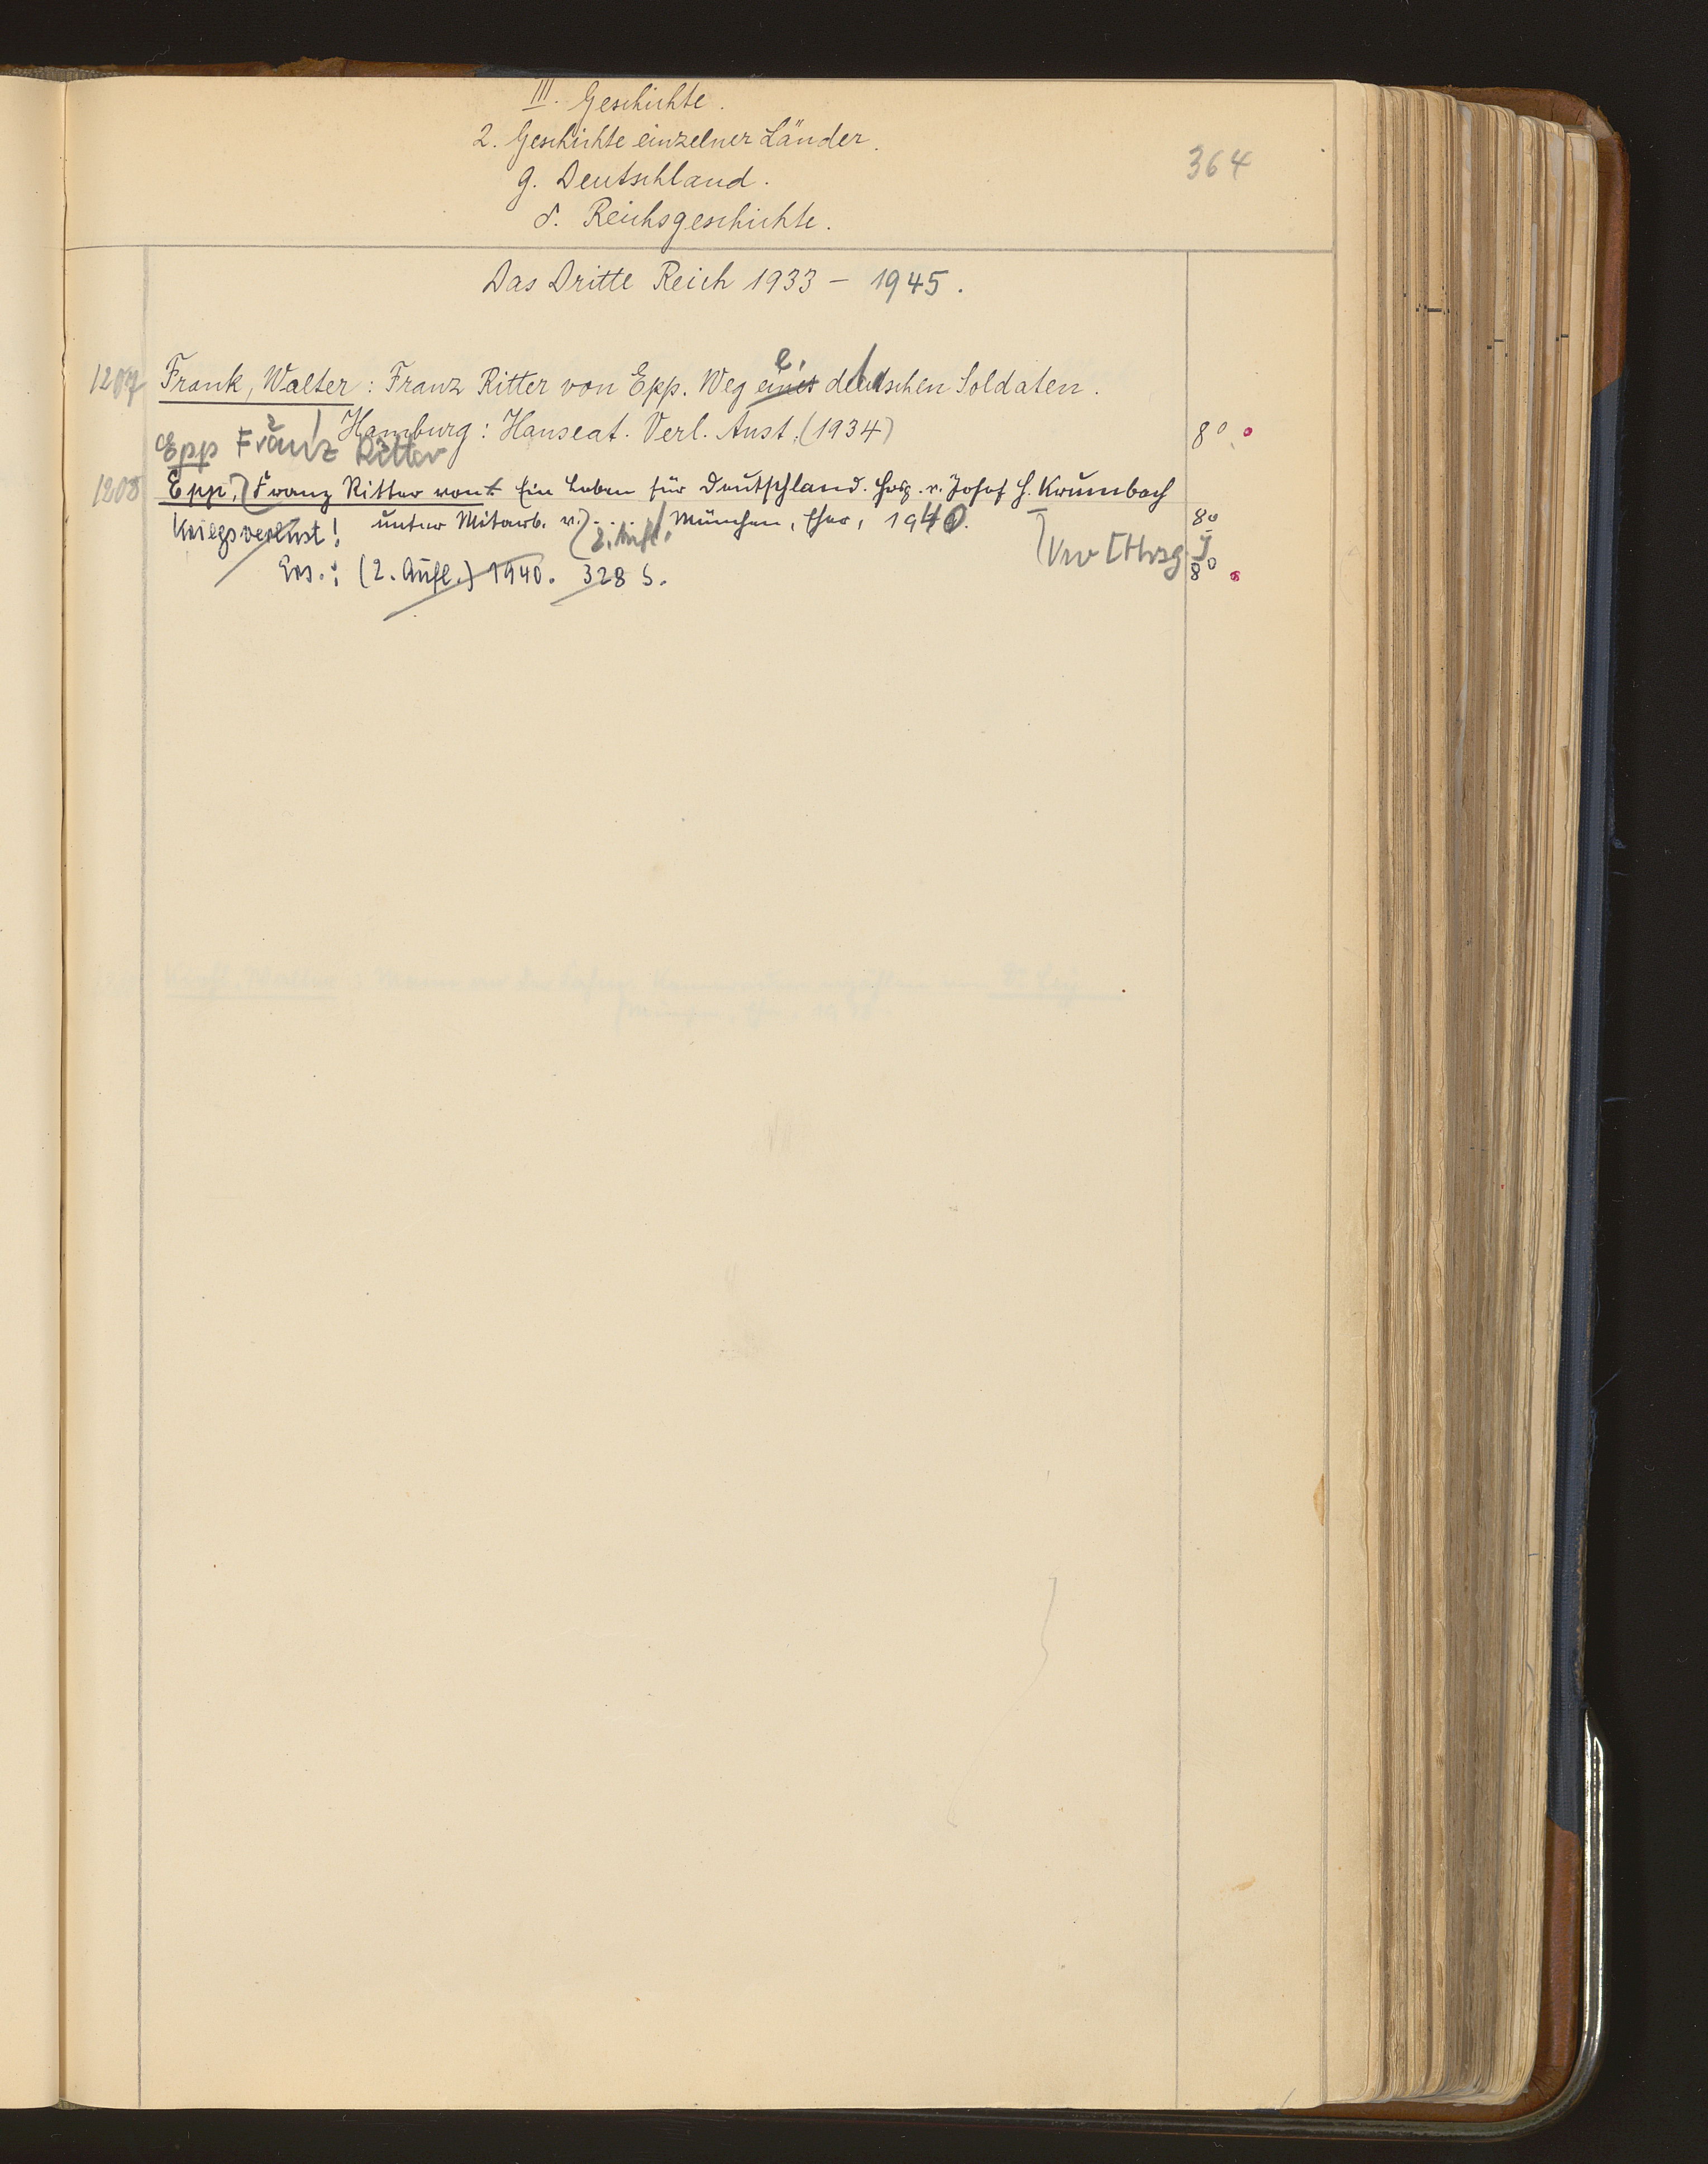 III. Geschichte.
2. Geschichte einzelner Länder.
g. Deutschland.
364
δ. Reichsgeschichte.
Das Dritte Reich 1933 – 1945.
1207 Frank, Walter: Franz Ritter von Epp. Weg eines deutschen Soldaten.
Hamburg: Hanseat. Verl. Anst. (1934) 8°
Epp Franz Ritter
1208 Epp, Franz Ritter von. Ein Leben für Deutschland. Hrsg. v. Josef H. Krumbach
unter Mitarb. v. . . . 2. Aufl. München, Eher, 1940. 8°
Kriegsverlust!
Vw [Hrsg.
Ers.: (2. Aufl.) 1940. 328 S. 8°